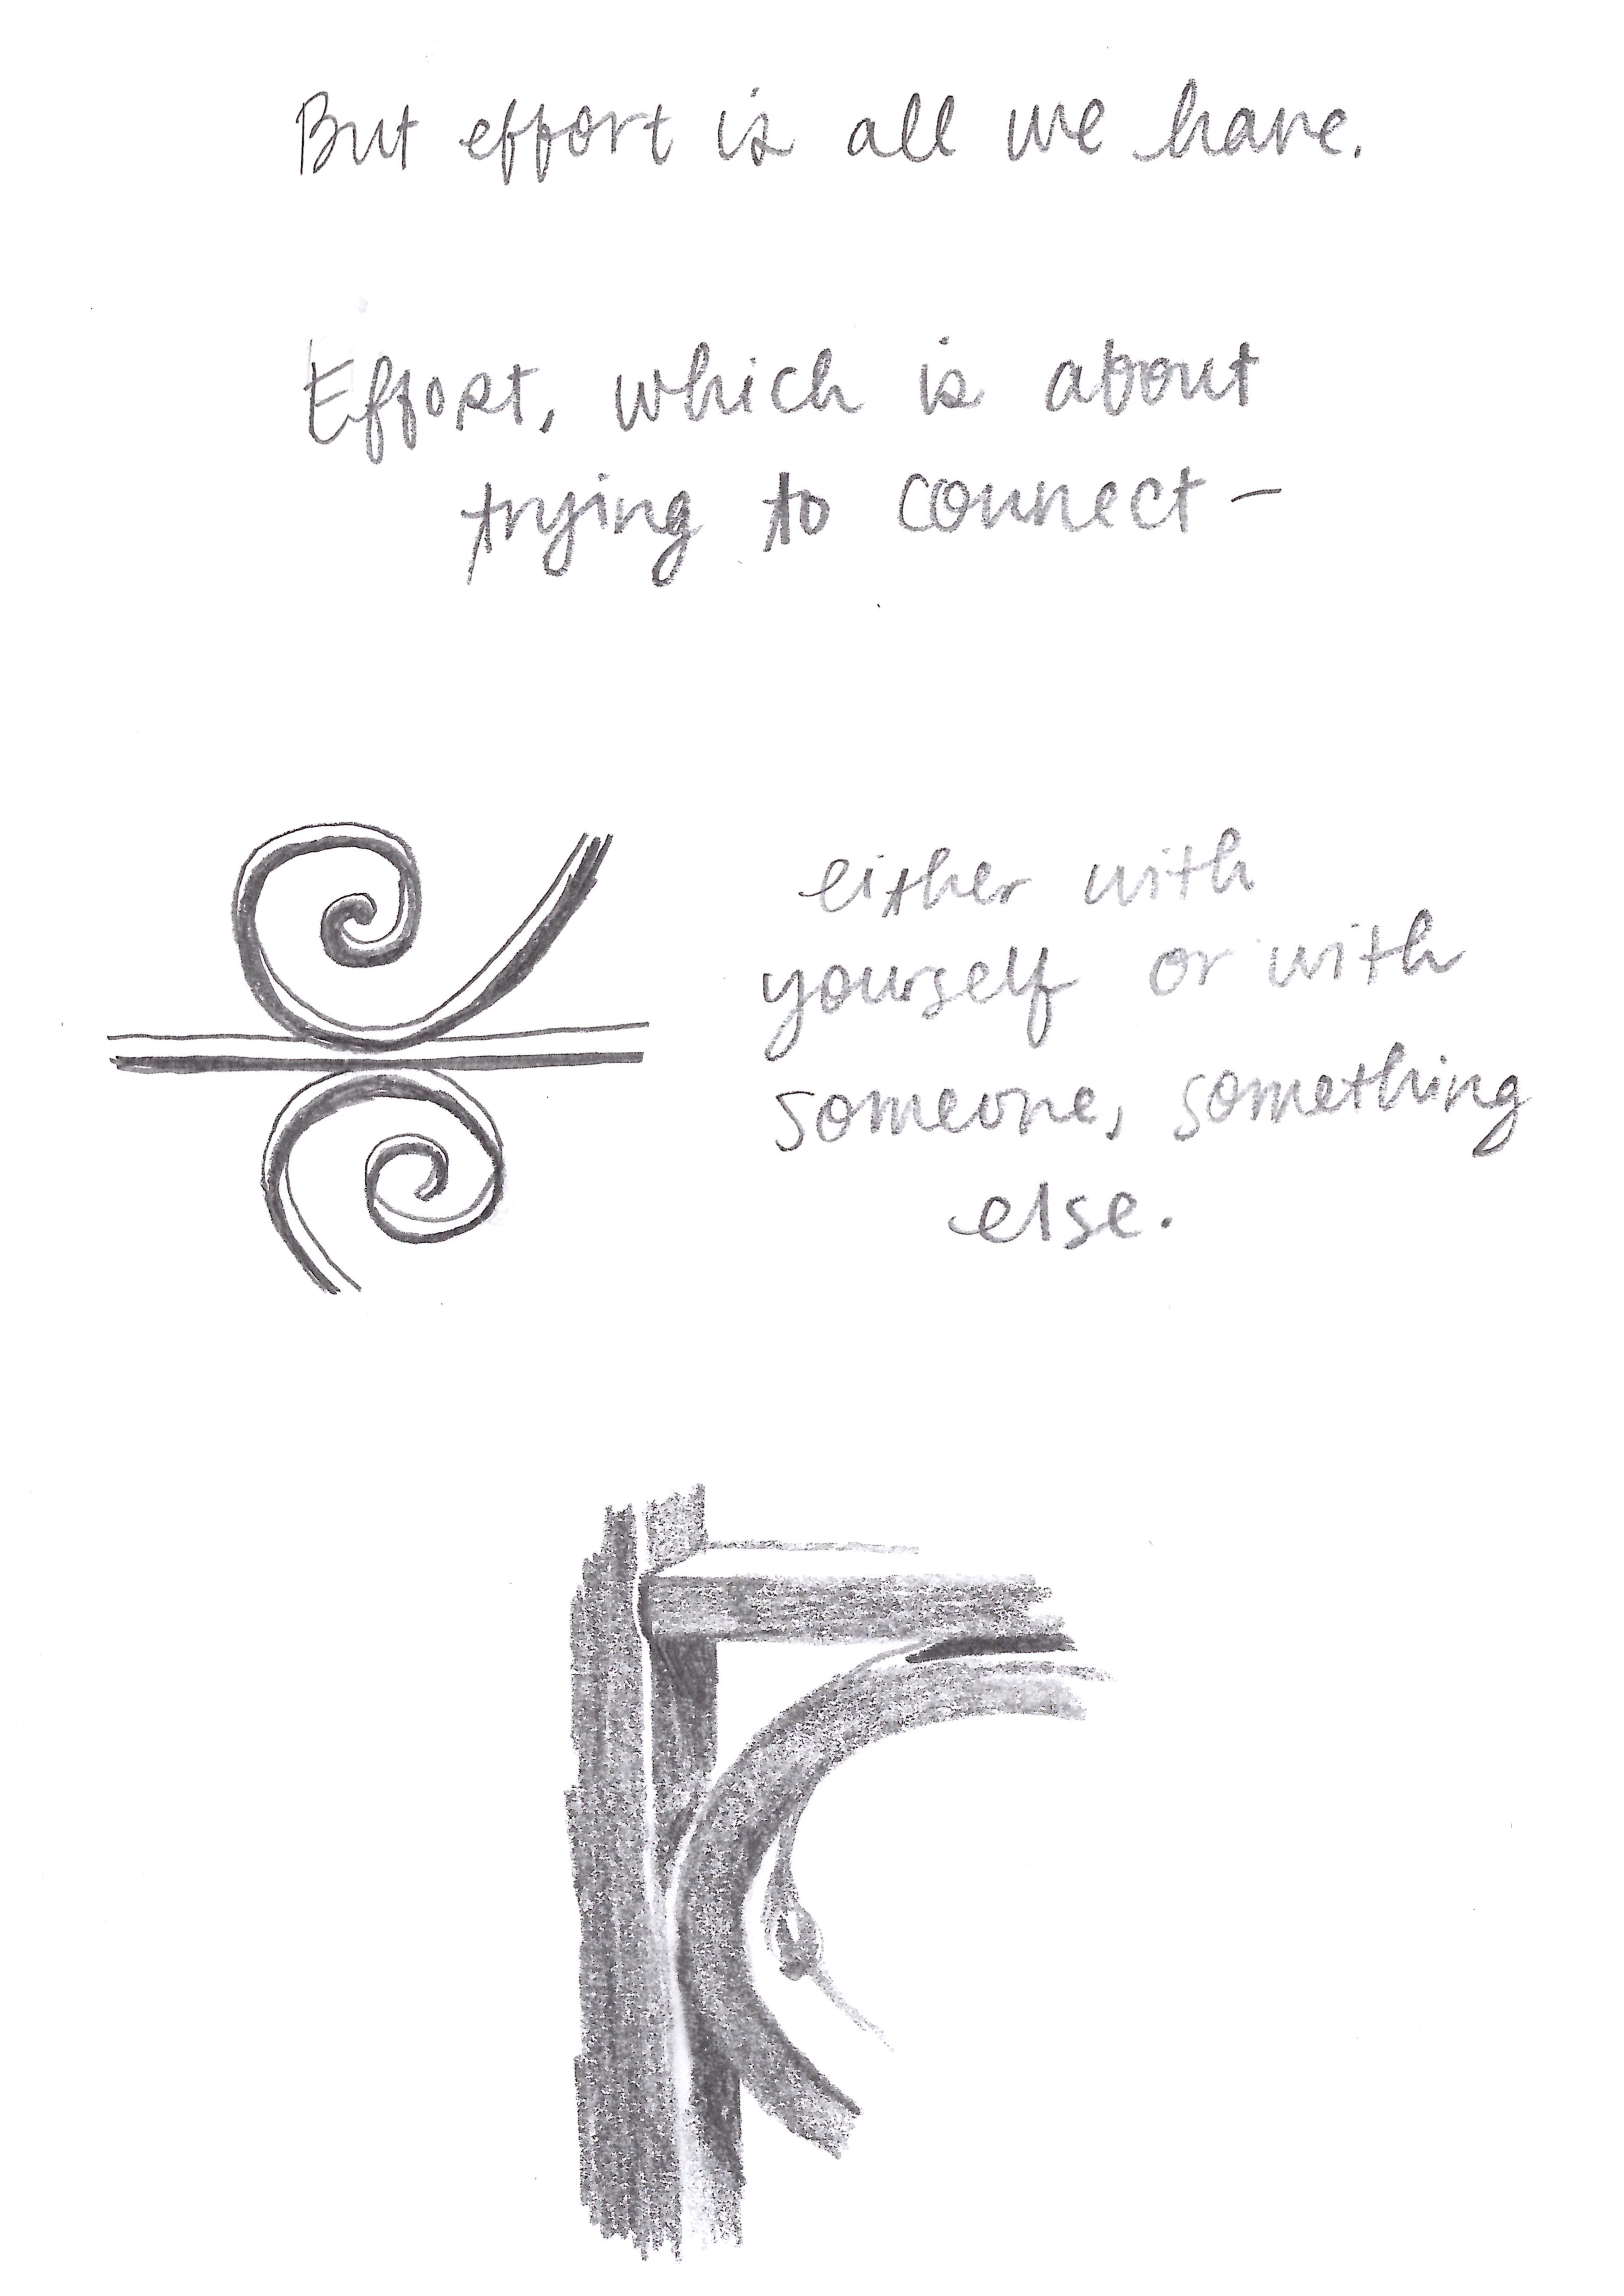 But effort is all we have.
Effort, which is about
trying to connect –
either with
yourself or with
someone, something
else.